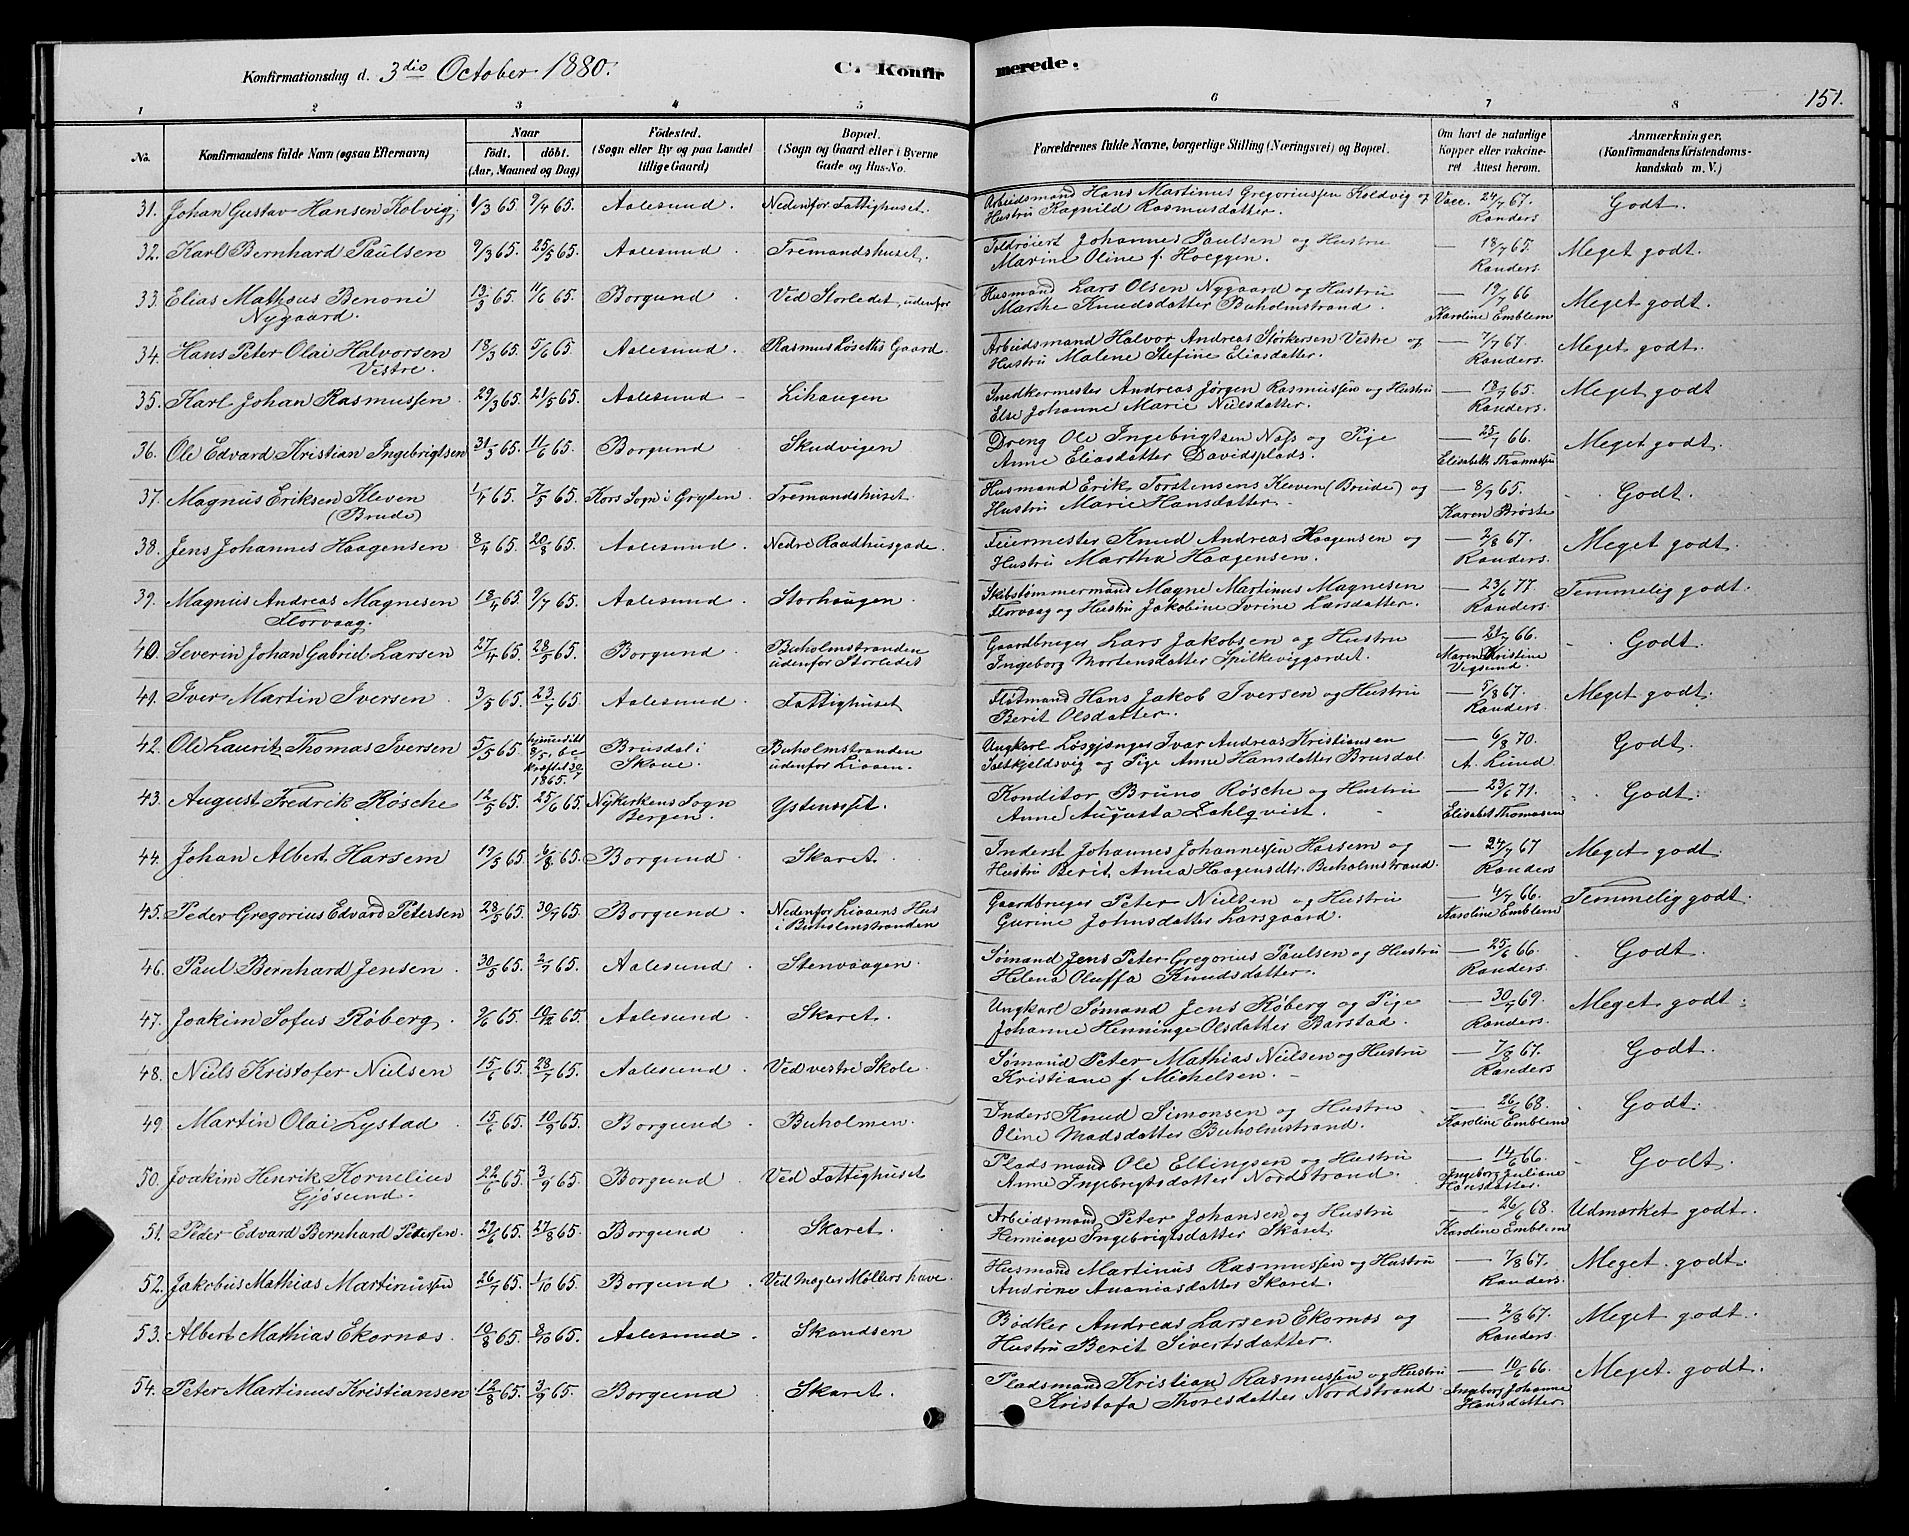 Konfirmationsdag d. 3dio October 1880. C. Konfirmerede. 151.
1 2 3 4 5 6 7 8
No. Konfirmandens fulde Navn (ogsaa Efternavn) Naar födt. döbt. (Aar, Maaned og Dag) Födested. (Sogn eller By og paa Landet tillige Gaard) Bopæl. (Sogn og Gaard eller i Byerne Gade og Hus-No. Forældrenes fulde Navne, borgerlige Stilling (Næringsvei) og Bopæl. Om havt de naturlige Kopper eller vakcineret Attest herom. Anmærkninger. (Konfirmandens Kristendomskundskab m. V.)
31. Johan Gustav Hansen Kolvig 1/3 65. 9/4 65. Aalesund. Nedenfor Fattighuset. Arbeidsmand Hans Martinus Gregoriussen Koldvig og Vacc. 24/7 67. Godt.
Hustru Ragnild Rasmusdatter. Randers
32. Karl Bernhard Paulsen 9/3 65. 25/5 65. Aalesund. Tremandshuset. Toldrøiert Johannes Paulsen og Hustru — 18/7 65. Meget godt.
Marine Oline f. Hoeggen. Randers.
33. Elias Matheus Benoni 13/3 65. 11/6 65. Borgund. Ved Storledet, udenfor Husmand Lars Olsen Nygaard og Hustru — 19/7 66 Meget godt.
Nygaard. Marthe Knudsdatter Buholmstrand. Karoline Emblem
34. Hans Peter Olai Halvorsen 18/3 65. 5/6 65. Aalesund. Rasmus Løsetts Gaard. Arbeidsmand Halvor Andreas Størkersen Vestre og — 7/7 67. Meget godt.
Vestre. Hustru Malene Stefine Eliasdatter. Randers.
35. Karl Johan Rasmussen. 29/3 65. 21/5 65. Aalesund – Lihaugen Snedkermester Andreas Jørgen Rasmussen og Hustru — 18/7 65. Meget godt
Else Johanne Marie Nielsdatter. Randers.
36. Ole Edvard Kristian Ingebrigtsen 31/3 65. 11/6 65. Borgund. Skudvigen Dreng Ole Ingebrigtsen Næss og Pige — 25/7 66. Meget godt.
Anne Eliasdatter Davidsplads. Elisabeth Thomassen
37. Magnus Eriksen Kleven 1/4 65. 7/5 65. Kors Sogn i Gryten. Tremandshuset. Husmand Erik Torstensens Kleven (Brude) og — 8/9 65. Godt.
(Brude) Hustru Marie Hansdatter. Karen Brøste
38. Jens Johannes Haagensen 8/4 65. 20/8 65. Aalesund. Nedre Raadhusgade. Feiermester Knud Andreas Haagensen og — 2/8 67. Meget godt.
Hustru Martha Haagensen. Randers.
39. Magnus Andreas Magnesen 18/4 65. 9/7 65. Aalesund. Storhaugen. Skibstømmermand Magne Martinus Magnesen — 23/6 77 Temmelig godt.
Florvaag. Florvaag og Hustru Jakobine Ivrine Larsdatter. Randers.
40. Severin Johan Gabriel Larsen 27/4 65. 28/5 65. Borgund. Buholmstranden Gaardbruger Lars Jakobsen og Hustru — 21/7 66. Godt.
udenfor Storledet Ingeborg Mortensdatter Spilkeviggærdet. Maren Kristine Vegsund.
41. Iver Martin Iversen 3/5 65. 23/7 65. Aalesund. Fattighuset Flotmand Hans Jakob Iversen og Hustru — 5/8 67. Meget godt.
Berit Olsdatter. Randers.
42. Ole Lauritz Thomas Iversen 5/5 65. hjemmedöbt 8/5, bekræftet 30/7 1865. Brusdal i Buholmstranden Ungkarl Løsgjænger Ivar Andreas Kristiansen — 6/8 70. Godt.
Skoue. udenfor Liaaen. Sætskjeldsvig og Pige Anne Hansdatter Brusdal A. Lund
43. August Fredrik Røsche 12/5 65. 25/6 65. Nykirkens Sogn Ystenæset. Konditor Bruno Røsche og Hustru — 23/6 71. Godt.
Bergen. Anne Augusta Zahlqvist. Elisabet Thomasen
44. Johan Albert Harsem 19/5 65. 6/8 65. Borgund. Skaret. Inderst Johannes Johannessen Harsem og — 24/7 67 Meget godt.
Hustru Berit Anna Haagensdtr. Buholmstrand. Randers
45. Peder Gregorius Edvard Petersen 28/5 65. 30/7 65. Borgund. Nedenfor Liaaens Hus Gaardbruger Peter Nielsen og Hustru — 4/7 66. Temmelig godt.
i Buholmstranden Gurine Johnsdatter Larsgaard. Karoline Emblem
46. Paul Bernhard Jensen. 30/5 65. 2/7 65. Aalesund. Stenvaagen. Sømand Jens Peter Gregorius Paulsen og Hustru — 25/6 66. Godt.
Helena Oluffa Knudsdatter. Randers.
47. Joakim Sofus Røberg. 9/6 65. 10/12 65. Aalesund. Skaret. Ungkarl Sømand Jens Røberg og Pige — 30/7 69. Meget godt.
Johanne Henninge Olsdatter Barstad. Randers.
48. Niels Kristofer Nielsen 15/6 65. 28/7 65. Aalesund. Ved vestre Skole. Sømand Peter Mathias Nielsen og Hustru — 7/8 67. Godt.
Kristiane f. Michelsen. Randers
49. Martin Olai Lystad. 15/6 65. 10/9 65. Borgund. Buholmen. Inders Knud Simonsen og Hustru — 26/6 68. Godt.
Oline Madsdatter Buholmstrand. Karoline Emblem
50. Joakim Henrik Kornelius 22/6 65. 3/9 65. Borgund. Ved Fattighuset Pladsmand Ole Ellingsen og Hustru — 14/6 66. Godt.
Gjøsund. Anne Ingebrigtsdatter Nordstrand. Ingeborg Juliane Hansdatter.
51. Peder Edvard Bernhard Petersen. 29/6 65. 27/8 65. Borgund. Skaret. Arbeidsmand Peter Johansen og Hustru — 26/6 68. Udmærket godt.
Henninge Ingebrigtsdatter Skaret. Karoline Emblem
52. Jakobus Mathias Martinussen 26/7 65. 1/10 65. Borgund. Ved Mægler Møllers have. Husmand Martinus Rasmussen og Hustru — 7/8 67. Meget godt.
Andrine Ananiasdatter Skaret. Randers
53. Albert Mathias Ekornæs. 10/8 65. 8/10 65. Aalesund. Skandsen Bødker Andreas Larsen Ekornæs og — 2/8 67. Meget godt.
Hustru Berit Sivertsdatter. Randers.
54. Peter Martinus Kristiansen 12/8 65. 3/9 65. Borgund. Skaret. Pladsmand Kristian Rasmussen og Hustru — 10/6 66. Meget godt.
Kristofa Thoresdatter Nordstrand. Ingeborg Johanne Hansdatter.